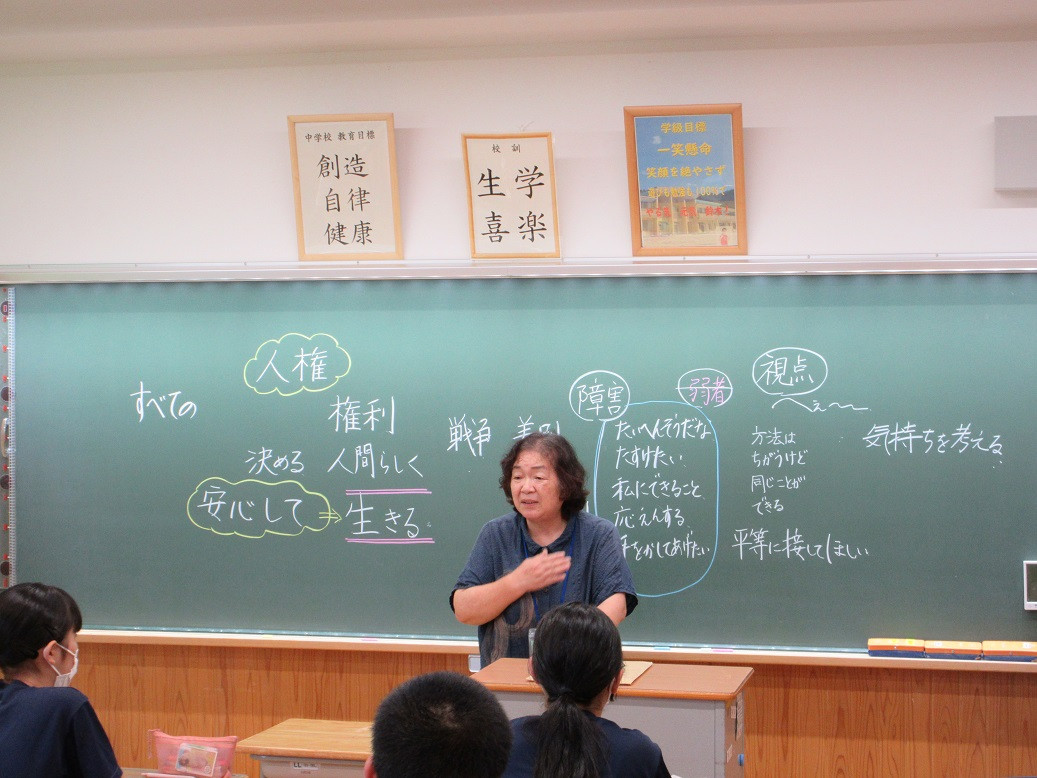 中学校 教育目標
創造
自律
健康
校訓
学楽
生喜
学級目標
一笑懸命
笑顔を絶やさず
人権
すべての
権利
決める 人間らしく
安心して
生きる。
戦争
障害
弱者
視点
へぇ〜
たいへんそうだな
たすけたい
私にできること
応えんする
をかしてあげたい
方法は
ちがうけど
同じことが
できる
気持ちを考える
平等に接してほしい
LL